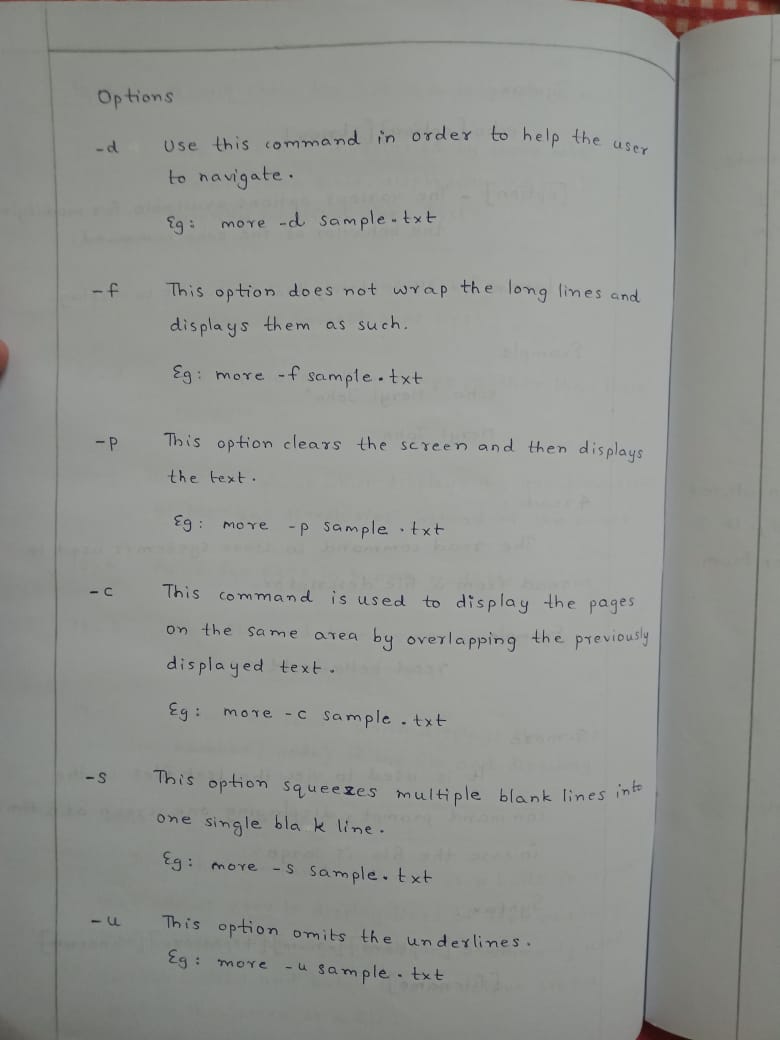 Options
-d Use this command in order to help the user
to navigate.
Eg: more -d sample.txt
-f This option does not wrap the long lines and
displays them as such.
Eg: more -f sample.txt
-p This option clears the screen and then displays
the text.
Eg: more -p sample.txt
-c This command is used to display the pages
on the same area by overlapping the previously
displayed text.
Eg: more -c sample.txt
-s This option squeezes multiple blank lines into
one single bla k line.
Eg: more -s sample.txt
-u This option omits the underlines.
Eg: more -u sample.txt